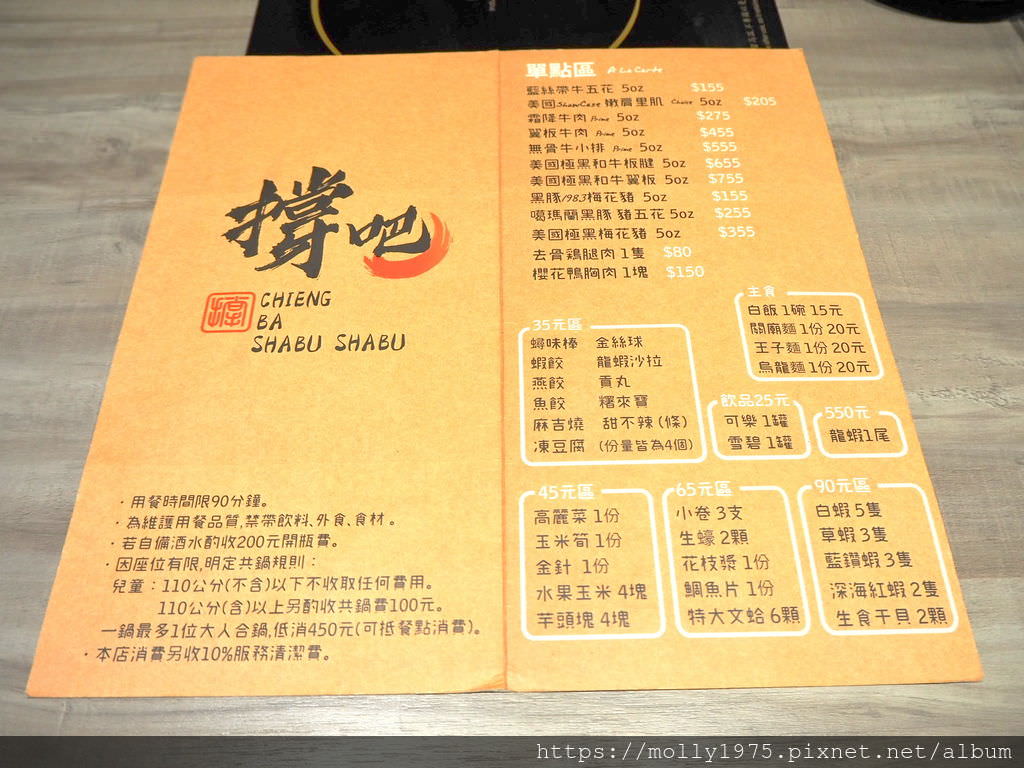 撐吧
CHIENG
BA
SHABU SHABU
・用餐時間限90分鐘。
・為維護用餐品質,禁帶飲料、外食、食材。
・若自備酒水酌收200元開瓶費。
・因座位有限,明定共鍋規則：
兒童：110公分(不含)以下不收取任何費用。
110公分(含)以上另酌收共鍋費100元。
一鍋最多1位大人合鍋,低消450元(可抵餐點消費)。
・本店消費另收10%服務清潔費。
單點區 A La Carte
藍絲帶牛五花 5oz $155
美國ShowCase 嫩肩里肌 Choice 5oz $205
霜降牛肉 Prime 5oz $275
翼板牛肉 Prime 5oz $455
無骨牛小排 Prime 5oz $555
美國極黑和牛板腱 5oz $655
美國極黑和牛翼板 5oz $755
黑豚1983梅花豬 5oz $155
噶瑪蘭黑豚 豬五花 5oz $255
美國極黑梅花豬 5oz $355
去骨雞腿肉 1隻 $80
櫻花鴨胸肉 1塊 $150
主食
白飯 1碗 15元
關廟麵 1份 20元
王子麵 1份 20元
烏龍麵 1份 20元
35元區
蟳味棒 金絲球
蝦餃 龍蝦沙拉
燕餃 貢丸
魚餃 糬來寶
麻吉燒 甜不辣(條)
凍豆腐 (份量皆為4個)
飲品25元
可樂 1罐
雪碧 1罐
550元
龍蝦1尾
45元區
高麗菜 1份
玉米筍 1份
金針 1份
水果玉米 4塊
芋頭塊 4塊
65元區
小卷 3支
生蠔 2顆
花枝漿 1份
鯛魚片 1份
特大文蛤 6顆
90元區
白蝦 5隻
草蝦 3隻
藍鑽蝦 3隻
深海紅蝦 2隻
生食干貝 2顆
https://molly1975.pixnet.net/album